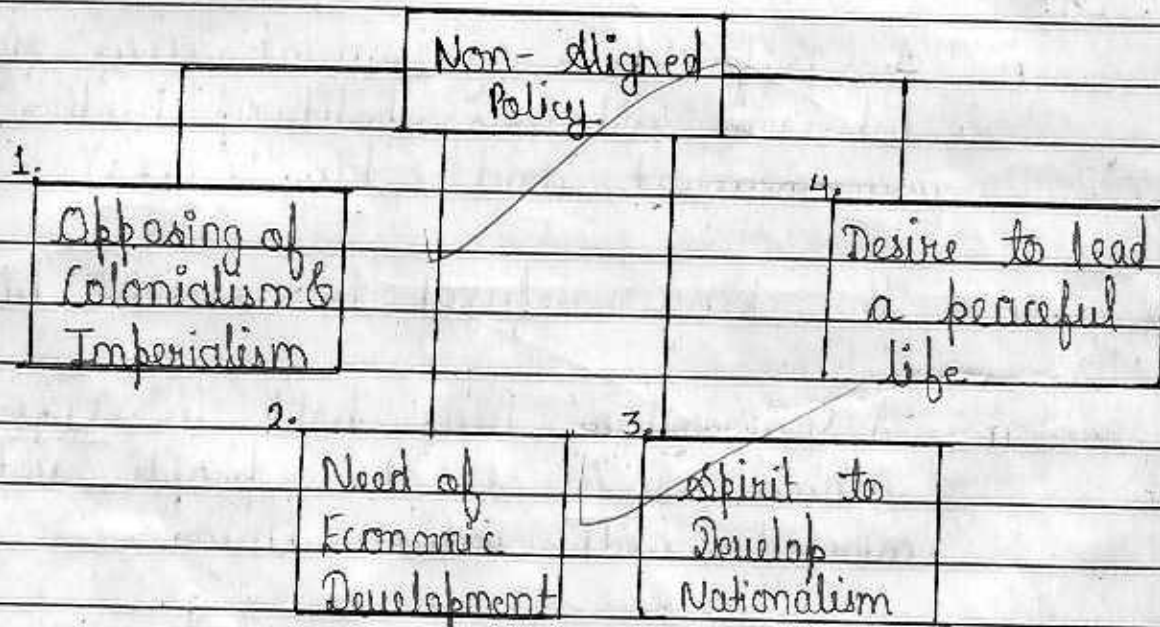 Non-Aligned
Policy
1.
Opposing of
Colonialism &
Imperialism
2.
Need of
Economic
Development
3.
Spirit to
Develop
Nationalism
4.
Desire to lead
a peaceful
life